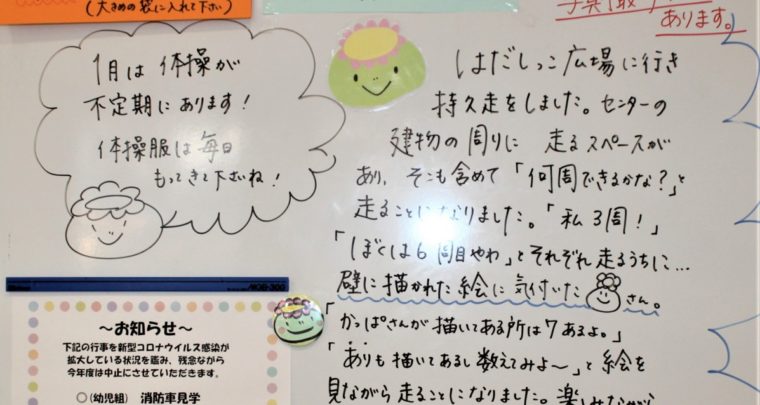 (大きめの袋に入れて下さい)
あります。
1月は体操が
不定期にあります!
体操服は毎日
もってきて下さいね!
はだしっこ広場に行き
持久走をしました。センターの
建物の周りに 走るスペースが
あり、そこも含めて「何周できるかな?」と
走ることになりました。「私3周!」
「ぼくは6周目やわ」とそれぞれ走るうちに…
壁に描かれた絵に気付いた さん。
「かっぱさんが描いてある所は7あるよ。」
「ありも描いてあるし数えてみよ〜」と絵を
見ながら走ることになりました。
MGB-300
〜お知らせ〜
下記の行事を新型コロナウイルス感染が
拡大している状況を鑑み、残念ながら
今年度は中止にさせていただきます。
○(幼児組) 消防車見学